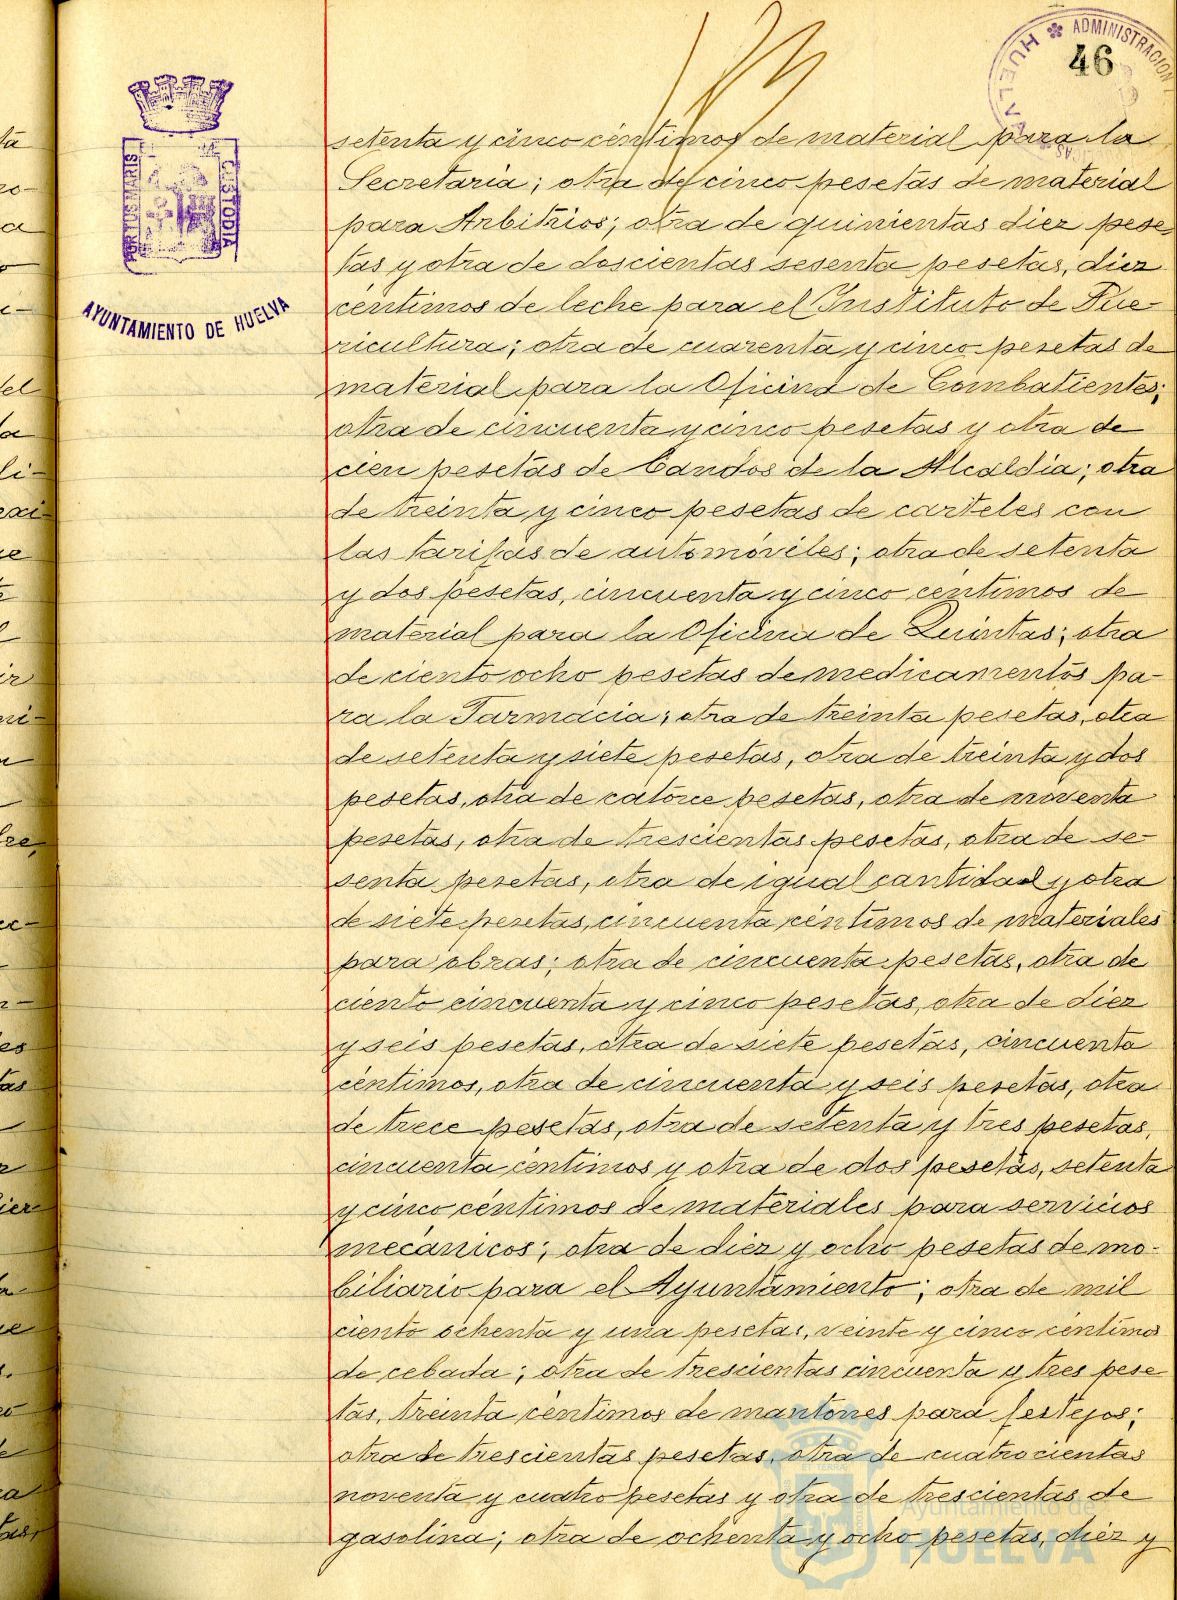 46
ADMINISTRACION
HUELVA
PORTUS MARIS
CUSTODIA
AYUNTAMIENTO DE HUELVA
setenta y cinco céntimos de material para la
Secretaria; otra de cinco pesetas de material
para Arbitrios; otra de quinientas diez pese-
tas y otra de doscientas sesenta pesetas, diez
céntimos de leche para el Instituto de Pue-
ricultura; otra de cuarenta y cinco pesetas de
material para la Oficina de Combatientes;
otra de cincuenta y cinco pesetas y otra de
cien pesetas de bandos de la Alcaldia; otra
de treinta y cinco pesetas de carteles con
las tarifas de automóviles; otra de setenta
y dos pesetas, cincuenta y cinco centimos de
material para la Oficina de Quintas; otra
de ciento ocho pesetas de medicamentos pa-
ra la Farmacia; otra de treinta pesetas, otra
de setenta y siete pesetas, otra de treinta y dos
pesetas, otra de catorce pesetas, otra de noventa
pesetas, otra de trescientas pesetas, otra de se-
senta pesetas, otra de igual cantidad y otra
de siete pesetas, cincuenta céntimos de materiales
para obras; otra de cincuenta pesetas, otra de
ciento cincuenta y cinco pesetas, otra de diez
y seis pesetas, otra de siete pesetas, cincuenta
céntimos, otra de cincuenta y seis pesetas, otra
de trece pesetas, otra de setenta y tres pesetas,
cincuenta centimos y otra de dos pesetas, setenta
y cinco céntimos de materiales para servicios
mecánicos; otra de diez y ocho pesetas de mo-
biliario para el Ayuntamiento; otra de mil
ciento ochenta y una pesetas, veinte y cinco céntimos
de cebada; otra de trescientas cincuenta y tres pese
tas, treinta céntimos de mantones para festejos;
otra de trescientas pesetas, otra de cuatrocientas
noventa y cuatro pesetas y otra de trescientas de
gasolina; otra de ochenta y ocho pesetas, diez y
Ayuntamiento de
HUELVA